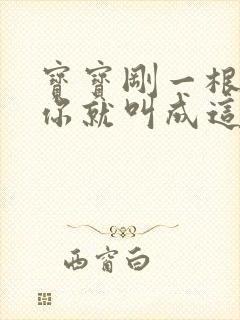 寶寶剛一根
你就叫成這
西窗白